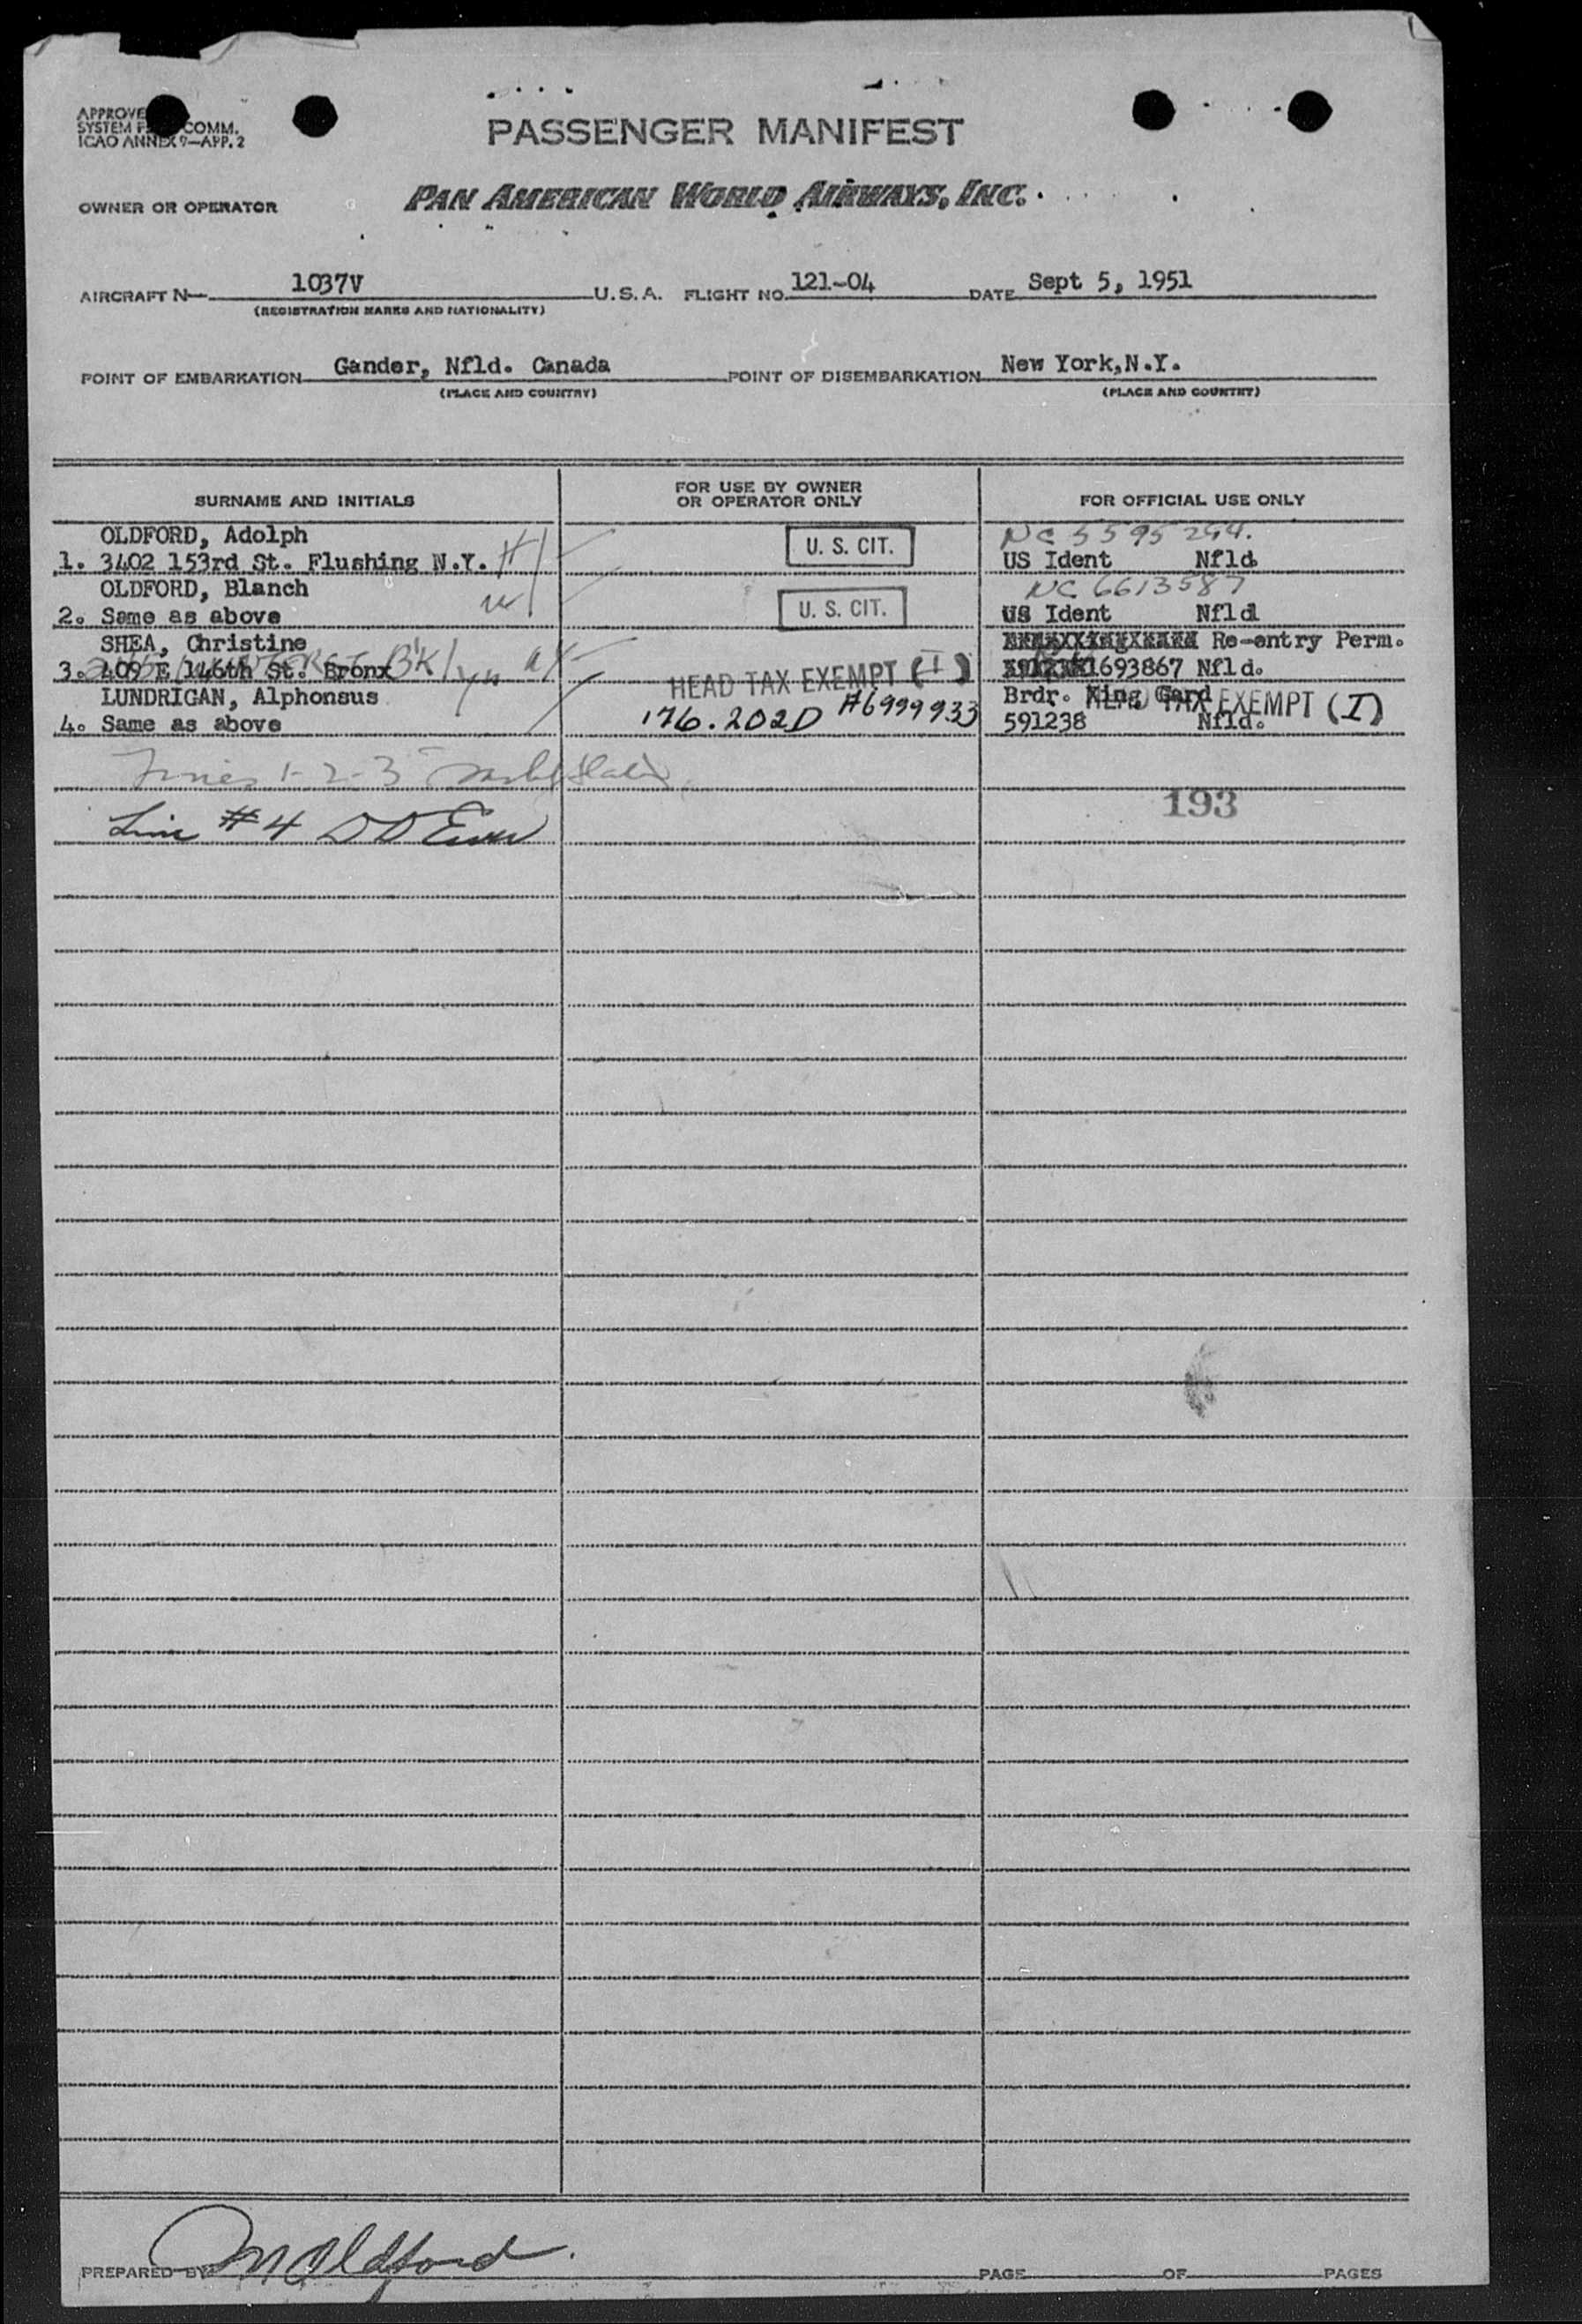 APPROVE
SYSTEM F COMM.
ICAO ANNEX 9—APP. 2
PASSENGER MANIFEST
OWNER OR OPERATOR PAN AMERICAN WORLD AIRWAYS, INC.
AIRCRAFT N— 1037V U.S.A. FLIGHT NO. 121-04 DATE Sept 5, 1951
(REGISTRATION MARKS AND NATIONALITY)
POINT OF EMBARKATION Gander, Nfld. Canada POINT OF DISEMBARKATION New York,N.Y.
(PLACE AND COUNTRY) (PLACE AND COUNTRY)
SURNAME AND INITIALS FOR USE BY OWNER OR OPERATOR ONLY FOR OFFICIAL USE ONLY
OLDFORD, Adolph U. S. CIT. NC 5595294.
1. 3402 153rd St. Flushing N.Y. H US Ident Nfld
OLDFORD, Blanch U. S. CIT. NC 6613587
2. Same as above w US Ident Nfld
SHEA, Christine Re-entry Perm.
3. 409 E 146th St. Bronx Bklyn HEAD TAX EXEMPT (I) 1693867 Nfld.
LUNDRIGAN, Alphonsus 176.202D A6999933 Brdr. Xing Card HEAD TAX EXEMPT (I)
4. Same as above 591238 Nfld.
Lines 1-2-3
193
Line #4 DD
PREPARED BY M Oldford. PAGE OF PAGES